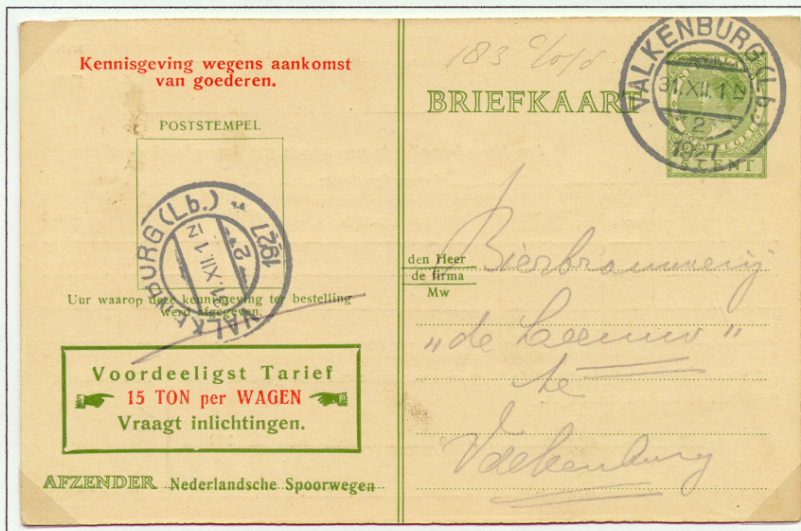 Kennisgeving wegens aankomst
van goederen.
POSTSTEMPEL
VALKENBURG (Lb.)
31.XII.12
2
1927
Uur waarop deze kennisgeving ter bestelling
werd afgegeven.
Voordeeligst Tarief
15 TON per WAGEN
Vraagt inlichtingen.
AFZENDER Nederlandsche Spoorwegen
183
BRIEFKAART
VALKENBURG (Lb.)
31.XII.12
2
1927
5 CENT
den Heer
de firma
Mw
Bierbrouwerij
"de Leeuw"
te
Valkenburg